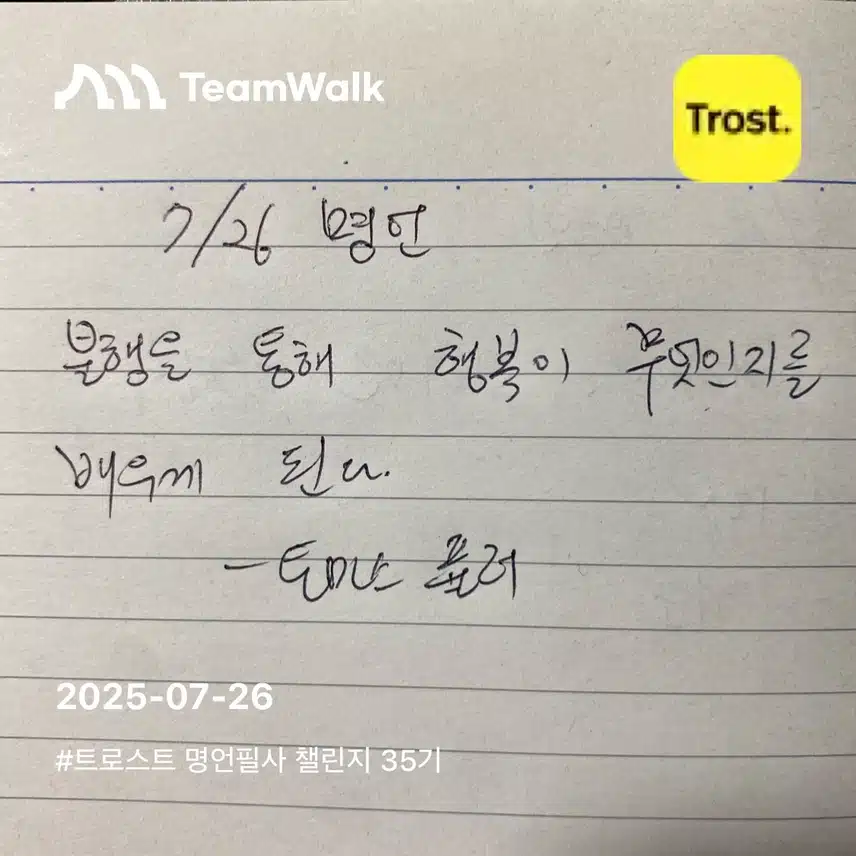 TeamWalk
Trost.
7/26 명언
불행을 통해 행복이 무엇인지를
배우게 된다.
- 토마스 풀러
2025-07-26
#트로스트 명언필사 챌린지 35기